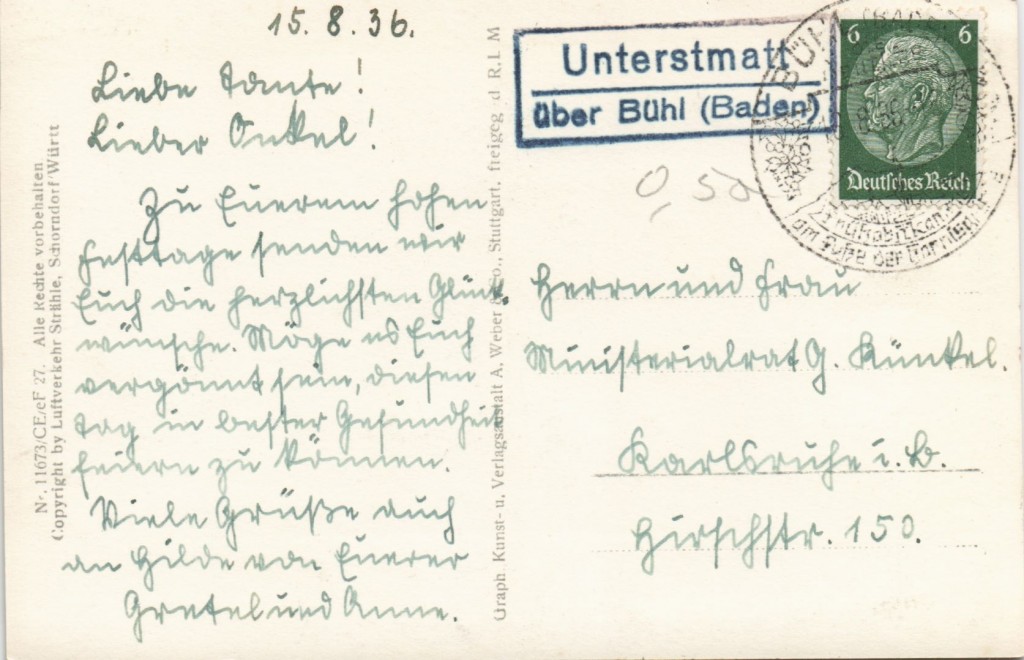 15. 8. 36.
Liebe Tante!
Lieber Onkel!
Zu Euerem hohen
Festtage senden wir
Euch die herzlichsten Glück-
wünsche. Möge es Euch
vergönnt sein, diesen
Tag in bester Gesundheit
feiern zu können.
Viele Grüße auch
an Hilde von Euerer
Gretel und Anne.
Nr. 11673/CE/cF 27. Alle Rechte vorbehalten
Copyright by Luftverkehr Strähle, Schorndorf/Württ
Graph. Kunst- u. Verlagsanstalt A. Weber & Co., Stuttgart, freigeg d R.L M
Unterstmatt
über Bühl (Baden)
6 6
Deutsches Reich
BÜHL (BADEN)
am Fuße der
0,50
Herrn und Frau
Ministerialrat G. Künkel.
Karlsruhe i. B.
Hirschstr. 150.